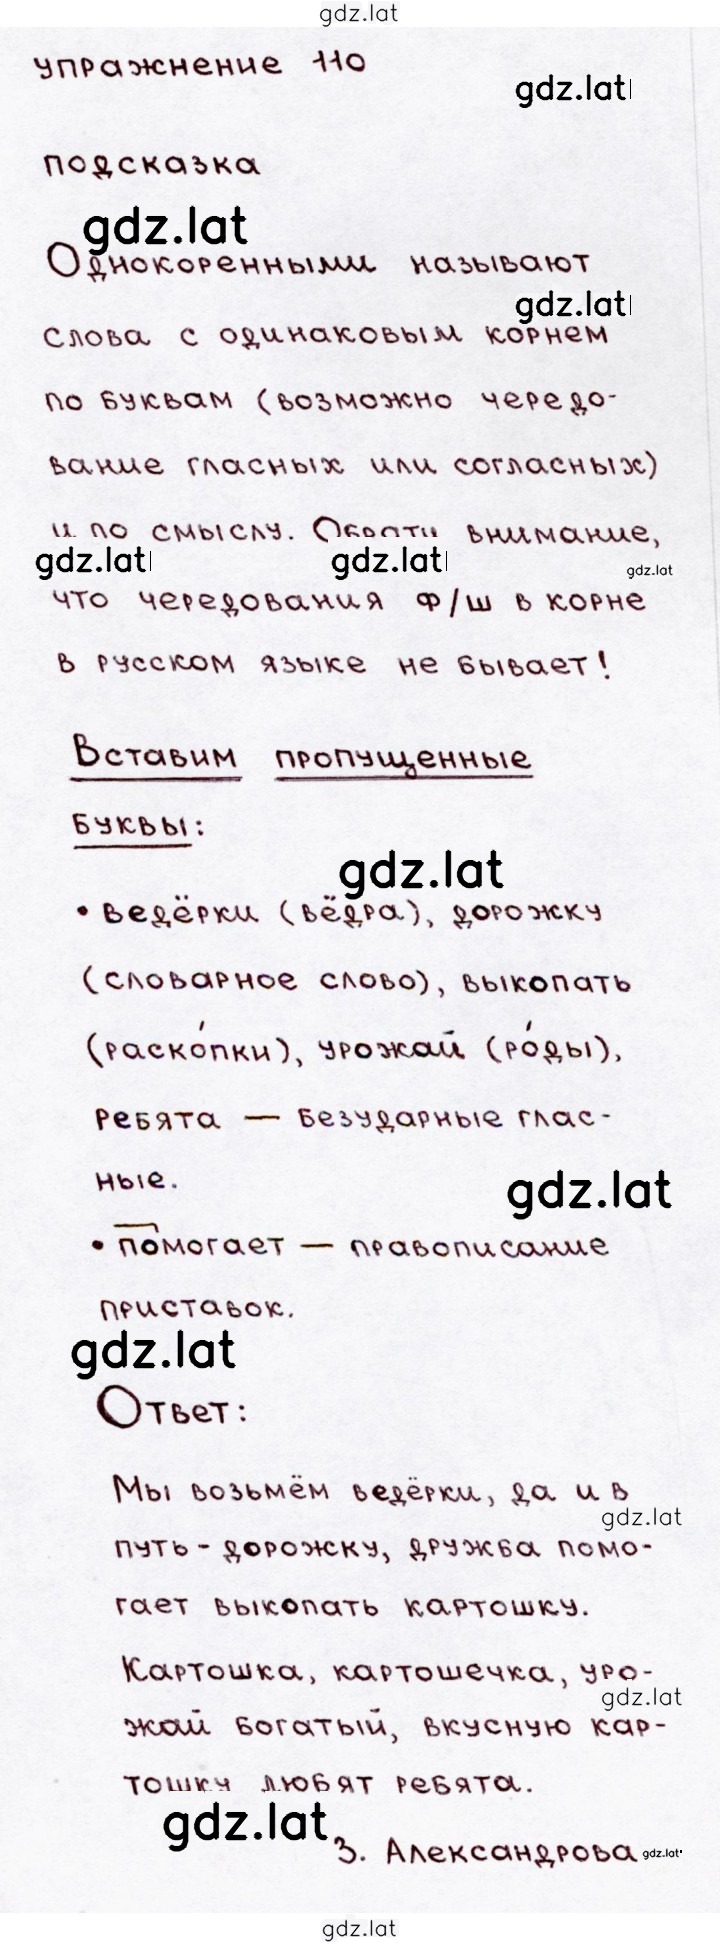 gdz.lat
упражнение 110
gdz.lat
подсказка
gdz.lat
Однокоренными называют
gdz.lat
слова с одинаковым корнем
по буквам (возможно чередо-
вание гласных или согласных)
и по смыслу. Обрати внимание,
gdz.lat gdz.lat gdz.lat
что чередования ф/ш в корне
в русском языке не бывает!
Вставим пропущенные
буквы:
gdz.lat
• ведёрки (вёдра), дорожку
(словарное слово), выкопать
(раско́пки), урожай (ро́ды),
ребята — безударные глас-
ные.
gdz.lat
• помогает — правописание
приставок.
gdz.lat
Ответ:
Мы возьмём ведёрки, да и в
gdz.lat
путь - дорожку, дружба помо-
гает выкопать картошку.
Картошка, картошечка, уро-
gdz.lat
жай богатый, вкусную кар-
тошку любят ребята.
gdz.lat
З. Александрова gdz.lat
gdz.lat